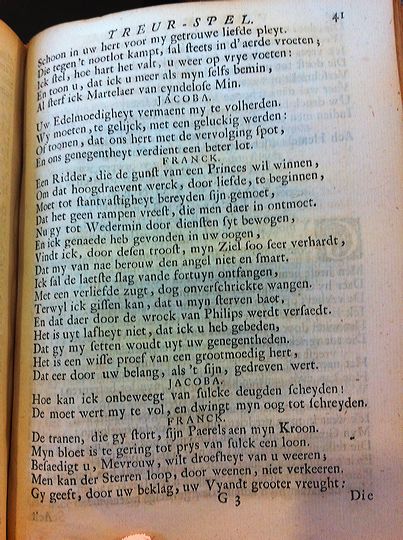 TREUR-SPEL. 41
Schoon in uw hert voor my getrouwe liefde pleyt.
Die tegen 't nootlot kampt, sal steets in d'aerde vroeten;
Ick stel, hoe hart het valt, u weer op vrye voeten:
En toon u, dat ick u meer als myn selfs bemin,
Al sterf ick Martelaer van eyndelose Min.
JACOBA.
Uw Edelmoedigheyt vermaent my te volherden.
Wy moeten, te gelijck, met een geluckig werden:
Of toonen, dat ons hert met de vervolging spot,
En ons genegentheyt verdient een beter lot.
FRANCK.
Een Ridder, die de gunst van een Princes wil winnen,
Om dat hoogdraevent werck, door liefde, te beginnen,
Moet tot stantvastigheyt bereyden sijn gemoet,
Dat het geen rampen vreest, die men daer in ontmoet.
Nu gy tot Wedermin door diensten syt bewogen,
En ick genaede heb gevonden in uw oogen,
Vindt ick, door desen troost, myn Ziel soo seer verhardt,
Dat my van nae berouw den angel niet en smart.
Ick sal de laetste slag vande fortuyn ontfangen,
Met een verliefde zugt, dog onverschrickte wangen.
Terwyl ick gissen kan, dat u myn sterven baet,
En dat daer door de wrock van Philips werdt versaedt.
Het is uyt lafheyt niet, dat ick u heb gebeden,
Dat gy my setten woudt uyt uw genegentheden.
Het is een wisse proef van een grootmoedig hert,
Dat eer door uw belang, als 't sijn, gedreven wert.
JACOBA.
Hoe kan ick onbeweegt van sulcke deugden scheyden!
De moet wert my te vol, en dwingt myn oog tot schreyden.
FRANCK.
De tranen, die gy stort, sijn Paerels aen myn Kroon.
Myn bloet is te gering tot prys van sulck een loon.
Besaedigt u, Mevrouw, wilt droefheyt van u weeren;
Men kan der Sterren loop, door weenen, niet verkeeren.
Gy geeft, door uw beklag, uw Vyandt grooter vreught:
G 3 Die